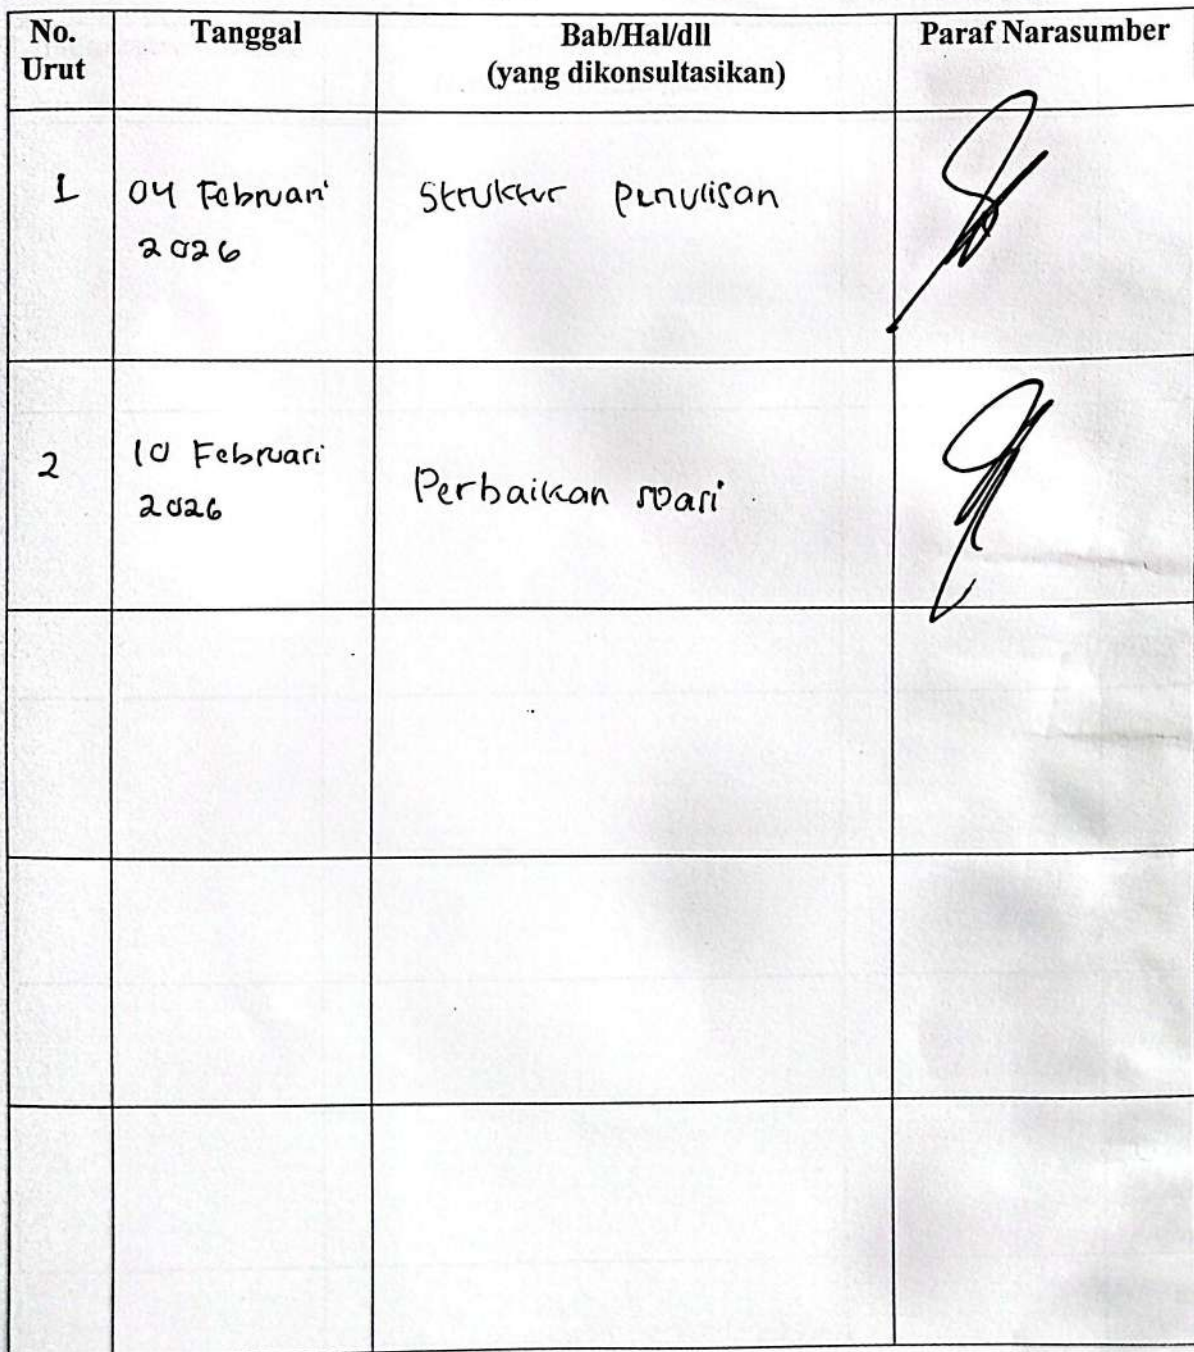 No. Urut
Tanggal
Bab/Hal/dll
(yang dikonsultasikan)
Paraf Narasumber
1
04 Februari
2026
Struktur Penulisan
2
10 Februari
2026
Perbaikan